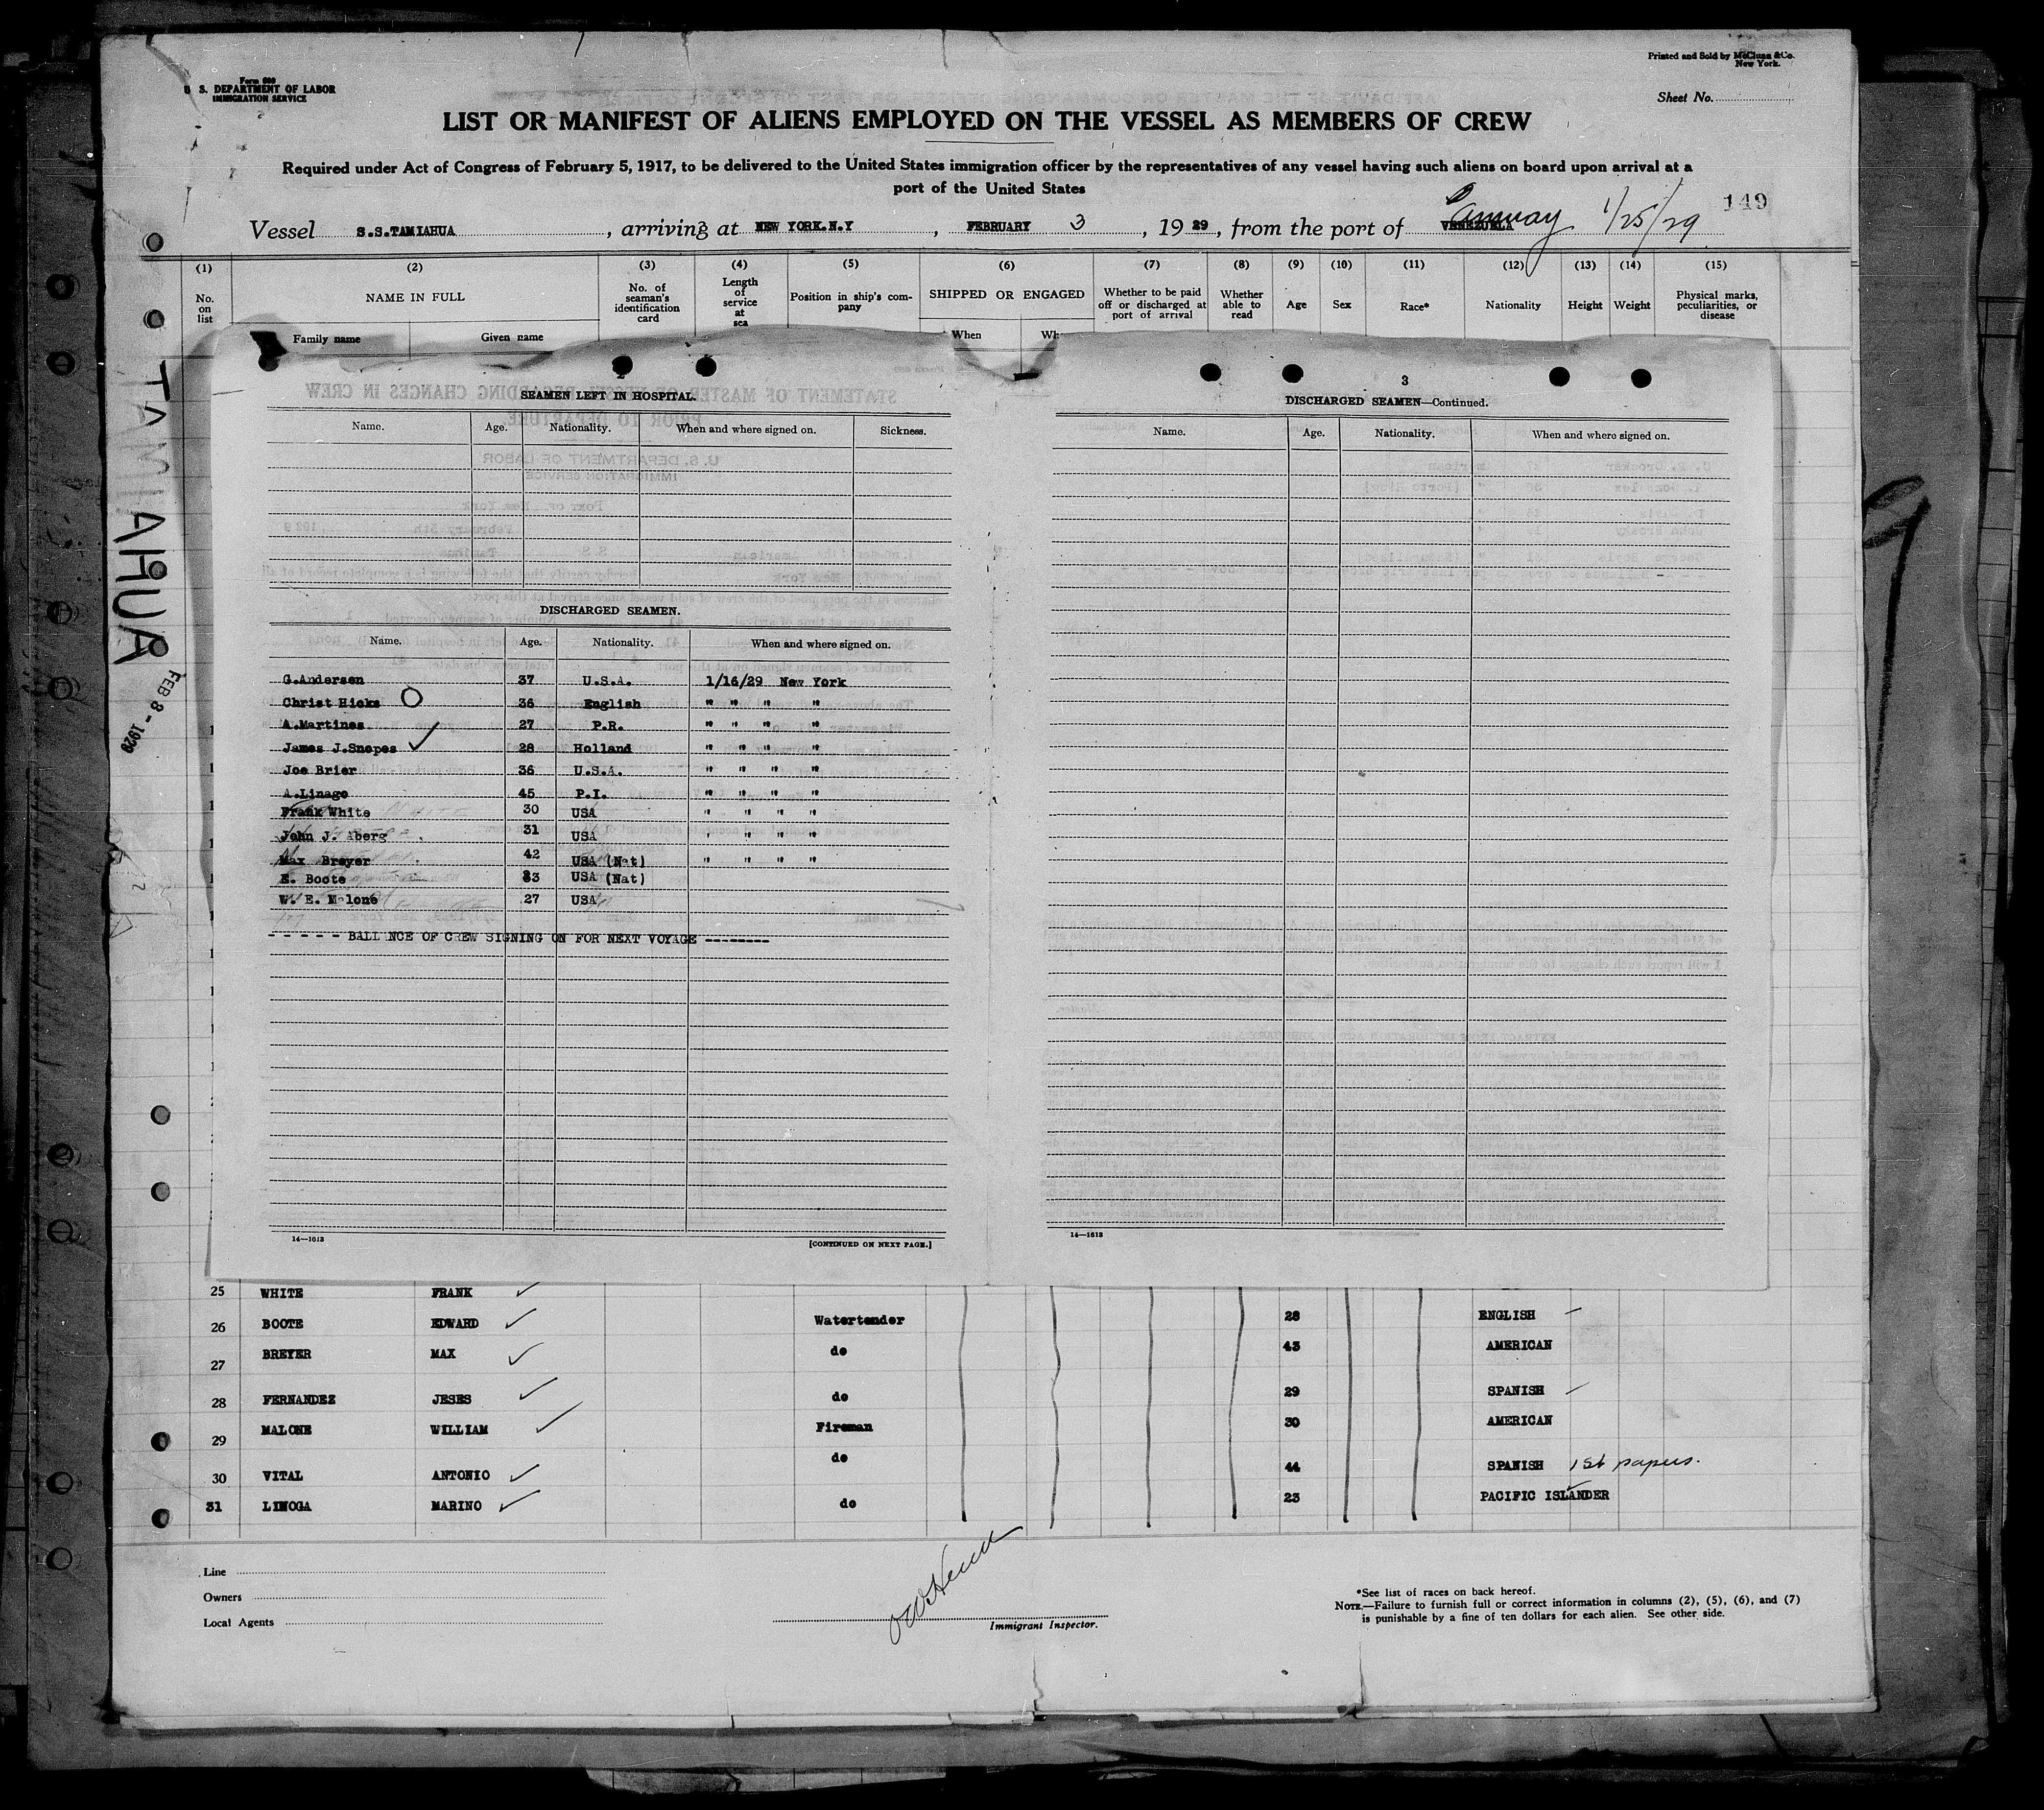 Form 680
U. S. DEPARTMENT OF LABOR
IMMIGRATION SERVICE
Printed and Sold by McClunn & Co.
New York.
Sheet No.
LIST OR MANIFEST OF ALIENS EMPLOYED ON THE VESSEL AS MEMBERS OF CREW
Required under Act of Congress of February 5, 1917, to be delivered to the United States immigration officer by the representatives of any vessel having such aliens on board upon arrival at a
port of the United States
149
Vessel S.S.TAMIAHUA, arriving at NEW YORK.N.Y, FEBRUARY 3, 1929, from the port of VENEZUELA 1/25/29
(1) (2) (3) (4) (5) (6) (7) (8) (9) (10) (11) (12) (13) (14) (15)
No. on list
NAME IN FULL
Family name Given name
No. of seaman's identification card
Length of service at sea
Position in ship's company
SHIPPED OR ENGAGED
When Wh
Whether to be paid off or discharged at port of arrival
Whether able to read
Age
Sex
Race*
Nationality
Height
Weight
Physical marks, peculiarities, or disease
TAMIAHUA
FEB 8 - 1929
2
SEAMEN LEFT IN HOSPITAL.
Name. Age. Nationality. When and where signed on. Sickness.
DISCHARGED SEAMEN.
Name. Age. Nationality. When and where signed on.
G.Andersen 37 U.S.A. 1/16/29 New York
Christ Hicks 36 English " " " "
A.Martines 27 P.R. " " " "
James J.Snepes 28 Holland " " " "
Joe Brier 36 U.S.A. " " " "
A.Linago 45 P.I. " " " "
Frank White 30 USA " " " "
John J. Aberg 31 USA " " " "
Max Breyer 42 USA (Nat) " " " "
E. Boote 33 USA (Nat)
W. E. Malone 27 USA
- - - - - BALLANCE OF CREW SIGNING ON FOR NEXT VOYAGE --------
14—1613
[CONTINUED ON NEXT PAGE.]
3
DISCHARGED SEAMEN—Continued.
Name. Age. Nationality. When and where signed on.
14—1613
25 WHITE FRANK
26 BOOTE EDWARD Watertender 28 ENGLISH
27 BREYER MAX do 43 AMERICAN
28 FERNANDEZ JESES do 29 SPANISH
29 MALONE WILLIAM Fireman 30 AMERICAN
30 VITAL ANTONIO do 44 SPANISH 1st papers.
31 LINOGA MARINO do 23 PACIFIC ISLANDER
Line
Owners
Local Agents
Immigrant Inspector.
*See list of races on back hereof.
NOTE.—Failure to furnish full or correct information in columns (2), (5), (6), and (7)
is punishable by a fine of ten dollars for each alien. See other side.